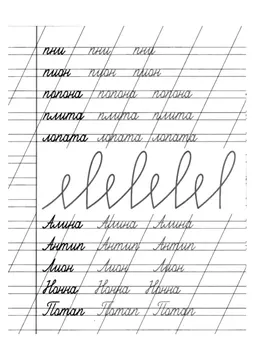 пни пни пни
пион пион пион
попона попона попона
плита плита плита
лопата лопата лопата
Алина Алина Алина
Антип Антип Антип
Лион Лион Лион
Нонна Нонна Нонна
Потап Потап Потап